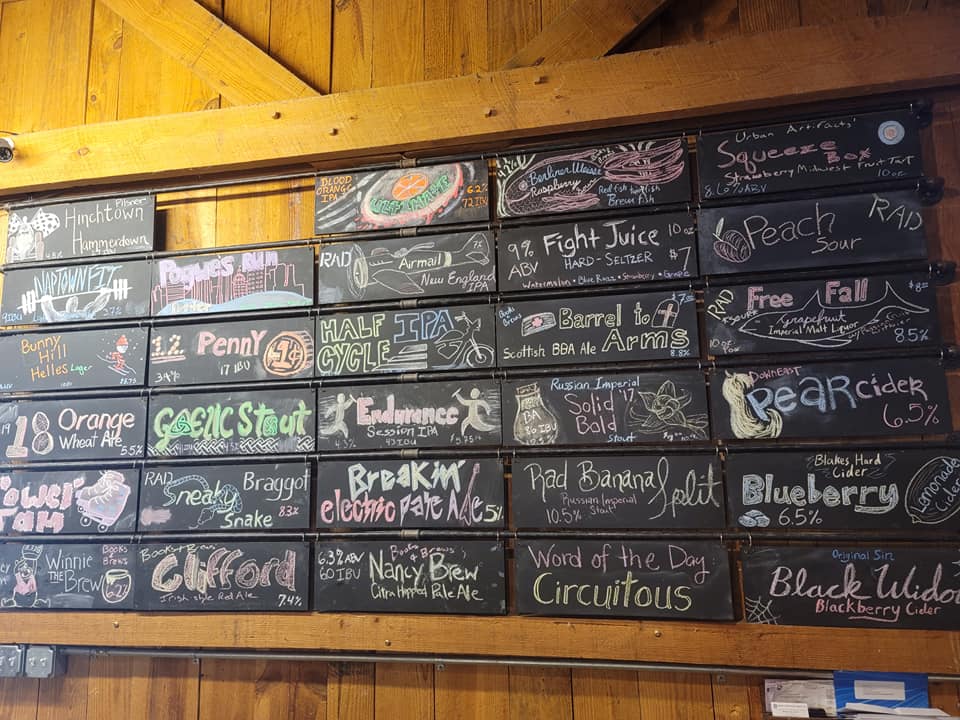 Hinchtown
Pilsner
Hammerdown
NAPTOWN FIT
9 IBU
2.7%
Bunny
Hill
Helles Lager
19
18 Orange
Wheat Ale 5.5%
Winnie
THE
Brew
Books
& Brews
Pogue's Run
12 Penny 1¢
3.4%
17 IBU
Gaelic Stout
RAD
Sneaky
Snake
Braggot
8.3%
Books & Brews
Clifford
Irish style Red Ale 7.4%
BLOOD
ORANGE
IPA
6.2%
72 IBU
RAD
Airmail
7%
New England
IPA
HALF IPA
CYCLE
Endurance
Session IPA
4.3% 43 IBU
Breakin'
electric pale Ale 5%
6.3% ABV
60 IBU
Books
& Brews's
Nancy Brew
Citra Hopped Pale Ale
Berliner Weisse
Raspberry
Red fish
Brew fish
9%
ABV
Fight Juice
10 oz
$7
HARD-SELTZER
Watermelon • Blue Razz • Strawberry • Grape
Books &
Brews
Barrel to
Arms
Scottish BBA Ale
8.8%
Russian Imperial
BA
86 IBU
Solid '17
Bold
Stout
Rad Banana Split
Russian Imperial
Stout
10.5%
Word of the Day:
Circuitous
Urban Artifacts'
Squeeze
Box
Strawberry Midwest Fruit Tart
8.6% ABV
10 oz
Peach
Sour
RAD
RAD
Free Fall
Grapefruit
Imperial Malt Liquor
10 oz Pour
8.5%
DOWNEAST
PEAR cider
6.5%
Blakes Hard
Cider
Blueberry
6.5%
Lemonade
Cider
Original Sin:
Black
Blackberry Cider